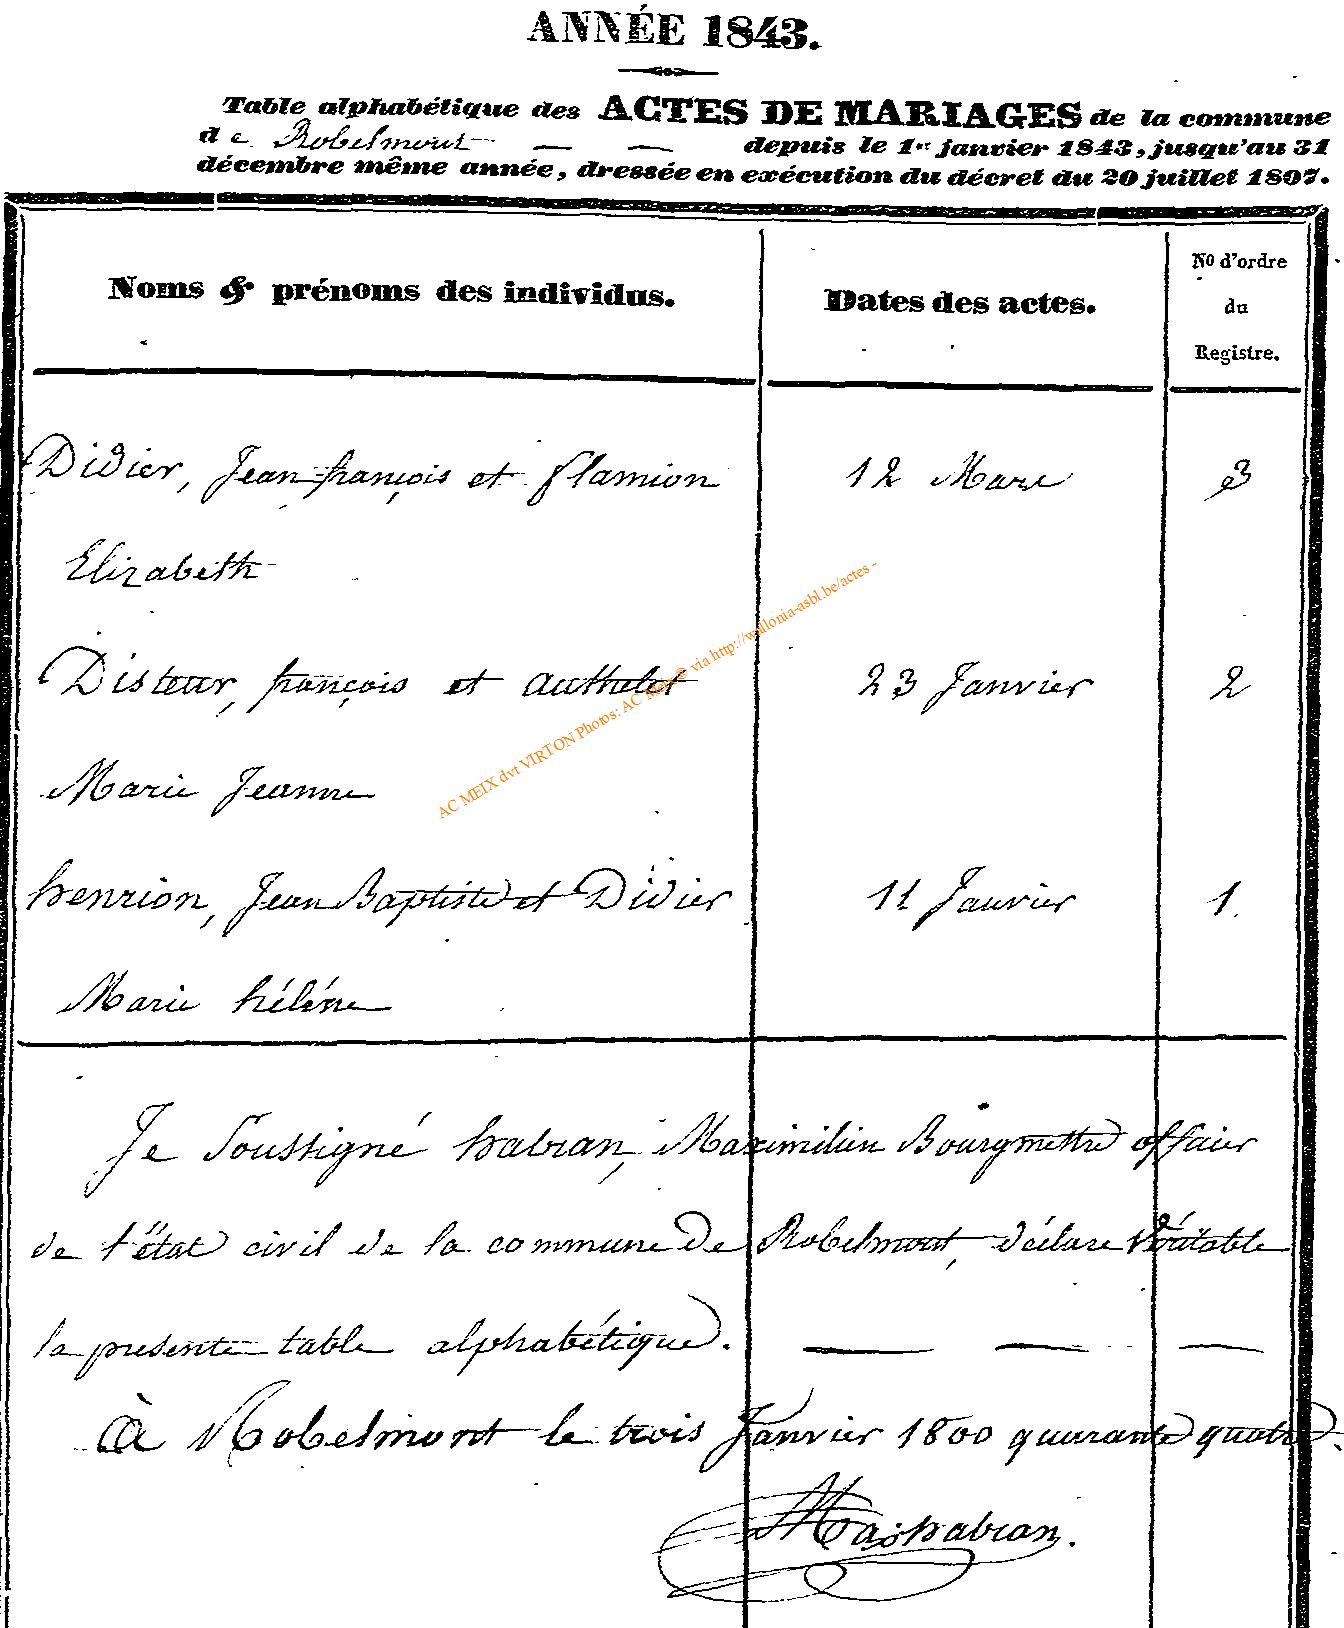 ANNÉE 1843.
Table alphabétique des ACTES DE MARIAGES de la commune
de Robelmont depuis le 1er janvier 1843, jusqu'au 31
décembre même année, dressée en exécution du décret du 20 juillet 1807.
Noms & prénoms des individus. Dates des actes. No d'ordre
du
Registre.
Didier, Jean françois et flamion 12 Mars 3
Elizabeth
Disteur, françois et authelet 23 Janvier 2
Marie Jeanne
henrion, Jean Baptiste et Didier 11 Janvier 1.
Marie héléne
Je Soussigné habran, Maximilien Bourgmettre officier
de l'état civil de la commune de Robelmont, déclare Véritable
la presente table alphabétique.
à Robelmont le trois Janvier 1800 quarante quatre.
habran.
AC MEIX dvt VIRTON Photos: AC via http://wallonia-asbl.be/actes -